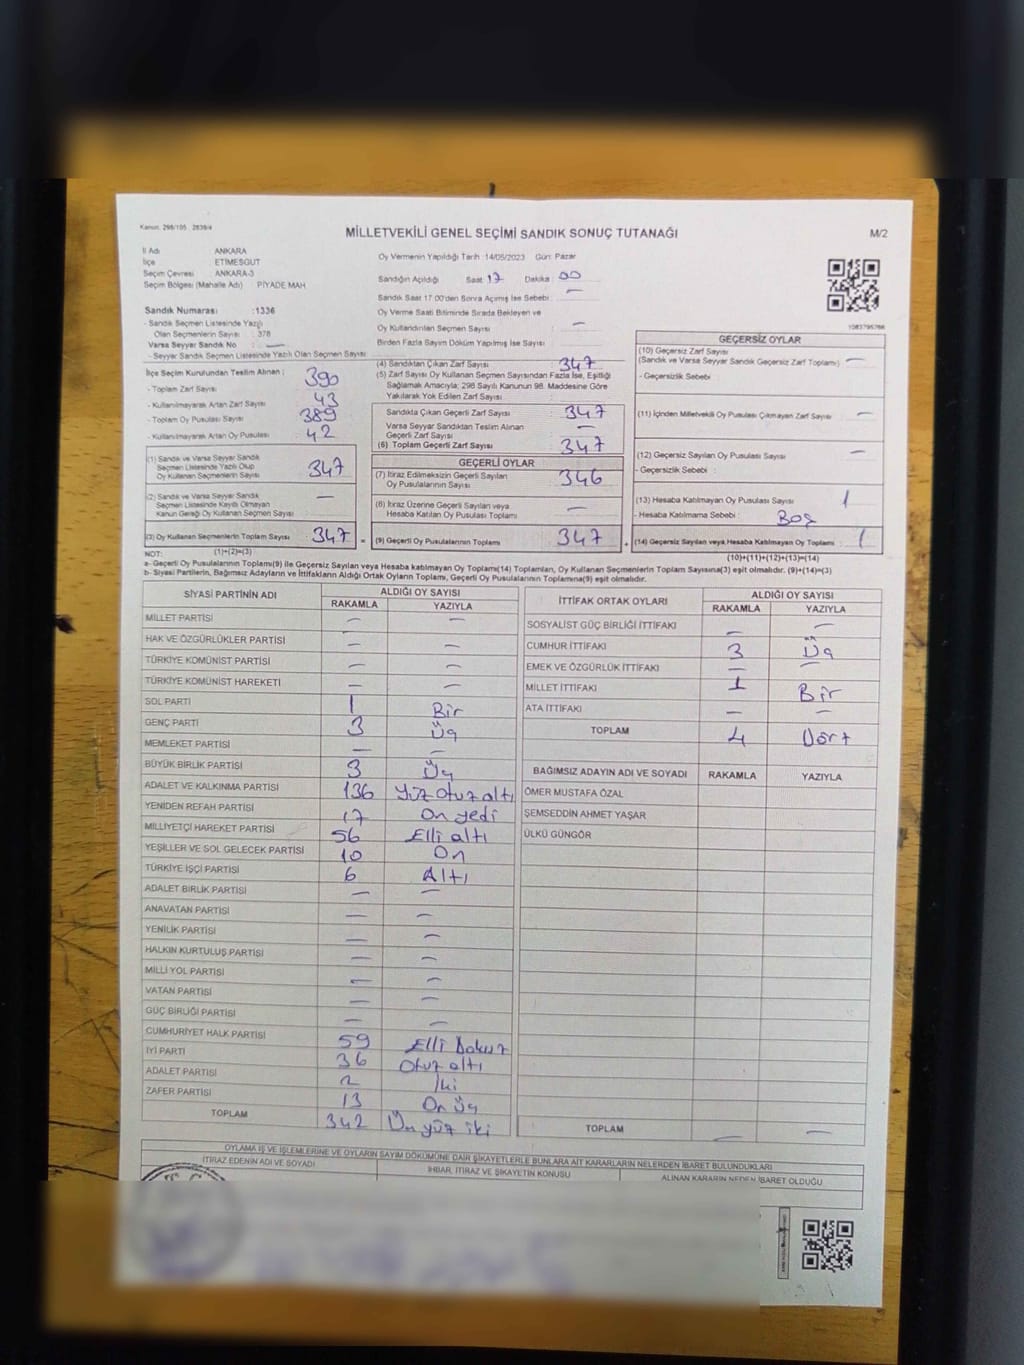 Kanun: 298/105 , 2839/4
MİLLETVEKİLİ GENEL SEÇİMİ SANDIK SONUÇ TUTANAĞI
M/2
İl Adı ANKARA
İlçe ETİMESGUT
Seçim Çevresi : ANKARA-3
Seçim Bölgesi (Mahalle Adı) PİYADE MAH.
Oy Vermenin Yapıldığı Tarih: 14/05/2023 Gün: Pazar
Sandığın Açıldığı Saat: 17 Dakika: 00
Sandık Saat 17:00'den Sonra Açılmış İse Sebebi : —
Oy Verme Saati Bitiminde Sırada Bekleyen ve
Oy Kullandırılan Seçmen Sayısı : —
Birden Fazla Sayım Döküm Yapılmış İse Sayısı
Sandık Numarası :1336
- Sandık Seçmen Listesinde Yazılı
Olan Seçmenlerin Sayısı : 378
Varsa Seyyar Sandık No : —
- Seyyar Sandık Seçmen Listesinde Yazılı Olan Seçmen Sayısı
İlçe Seçim Kurulundan Teslim Alınan ;
- Toplam Zarf Sayısı 390
- Kullanılmayarak Artan Zarf Sayısı 43
- Toplam Oy Pusulası Sayısı 389
- Kullanılmayarak Artan Oy Pusulası 42
(1) Sandık ve Varsa Seyyar Sandık
Seçmen Listesinde Yazılı Olup
Oy Kullanan Seçmenlerin Sayısı 347
(2) Sandık ve Varsa Seyyar Sandık
Seçmen Listesinde Kayıtlı Olmayan
Kanun Gereği Oy Kullanan Seçmen Sayısı —
(3) Oy Kullanan Seçmenlerin Toplam Sayısı 347 =
(1)+(2)=(3)
(4) Sandıktan Çıkan Zarf Sayısı 347
(5) Zarf Sayısı Oy Kullanan Seçmen Sayısından Fazla İse, Eşitliği
Sağlamak Amacıyla; 298 Sayılı Kanunun 98. Maddesine Göre
Yakılarak Yok Edilen Zarf Sayısı
Sandıkta Çıkan Geçerli Zarf Sayısı 347
Varsa Seyyar Sandıktan Teslim Alınan
Geçerli Zarf Sayısı —
(6) Toplam Geçerli Zarf Sayısı 347
GEÇERLİ OYLAR
(7) İtiraz Edilmeksizin Geçerli Sayılan
Oy Pusulalarının Sayısı 346
(8) İtiraz Üzerine Geçerli Sayılan veya
Hesaba Katılan Oy Pusulası Toplamı —
(9) Geçerli Oy Pusulalarının Toplamı 347 +
1083795766
GEÇERSİZ OYLAR
(10) Geçersiz Zarf Sayısı
(Sandık ve Varsa Seyyar Sandık Geçersiz Zarf Toplamı) —
- Geçersizlik Sebebi :
(11) İçinden Milletvekili Oy Pusulası Çıkmayan Zarf Sayısı : —
(12) Geçersiz Sayılan Oy Pusulası Sayısı —
- Geçersizlik Sebebi :
(13) Hesaba Katılmayan Oy Pusulası Sayısı 1
- Hesaba Katılmama Sebebi : Boş
(14) Geçersiz Sayılan veya Hesaba Katılmayan Oy Toplamı : 1
(10)+(11)+(12)+(13)=(14)
NOT:
a- Geçerli Oy Pusulalarının Toplamı(9) ile Geçersiz Sayılan veya Hesaba katılmayan Oy Toplamı(14) Toplamları, Oy Kullanan Seçmenlerin Toplam Sayısına(3) eşit olmalıdır. (9)+(14)=(3)
b- Siyasi Partilerin, Bağımsız Adayların ve İttifakların Aldığı Ortak Oyların Toplamı, Geçerli Oy Pusulalarının Toplamına(9) eşit olmalıdır.
SİYASİ PARTİNİN ADI ALDIĞI OY SAYISI
RAKAMLA YAZIYLA
MİLLET PARTİSİ — —
HAK VE ÖZGÜRLÜKLER PARTİSİ — —
TÜRKİYE KOMÜNİST PARTİSİ — —
TÜRKİYE KOMÜNİST HAREKETİ — —
SOL PARTİ 1 Bir
GENÇ PARTİ 3 Üç
MEMLEKET PARTİSİ — —
BÜYÜK BİRLİK PARTİSİ 3 Üç
ADALET VE KALKINMA PARTİSİ 136 Yüz otuz altı
YENİDEN REFAH PARTİSİ 17 On yedi
MİLLİYETÇİ HAREKET PARTİSİ 56 Elli altı
YEŞİLLER VE SOL GELECEK PARTİSİ 10 On
TÜRKİYE İŞÇİ PARTİSİ 6 Altı
ADALET BİRLİK PARTİSİ — —
ANAVATAN PARTİSİ — —
YENİLİK PARTİSİ — —
HALKIN KURTULUŞ PARTİSİ — —
MİLLİ YOL PARTİSİ — —
VATAN PARTİSİ — —
GÜÇ BİRLİĞİ PARTİSİ — —
CUMHURİYET HALK PARTİSİ 59 Elli Dokuz
İYİ PARTİ 36 Otuz altı
ADALET PARTİSİ 2 İki
ZAFER PARTİSİ 13 On Üç
TOPLAM 342 Ün yüz iki
İTTİFAK ORTAK OYLARI ALDIĞI OY SAYISI
RAKAMLA YAZIYLA
SOSYALİST GÜÇ BİRLİĞİ İTTİFAKI — —
CUMHUR İTTİFAKI 3 Üç
EMEK VE ÖZGÜRLÜK İTTİFAKI — —
MİLLET İTTİFAKI 1 Bir
ATA İTTİFAKI — —
TOPLAM 4 Dört
BAĞIMSIZ ADAYIN ADI VE SOYADI RAKAMLA YAZIYLA
ÖMER MUSTAFA ÖZAL
ŞEMSEDDİN AHMET YAŞAR
ÜLKÜ GÜNGÖR
TOPLAM — —
OYLAMA İŞ VE İŞLEMLERİNE VE OYLARIN SAYIM DÖKÜMÜNE DAİR ŞİKAYETLERLE BUNLARA AİT KARARLARIN NELERDEN İBARET BULUNDUKLARI
İTİRAZ EDENİN ADI VE SOYADI İHBAR, İTİRAZ VE ŞİKAYETİN KONUSU ALINAN KARARIN NEDEN İBARET OLDUĞU